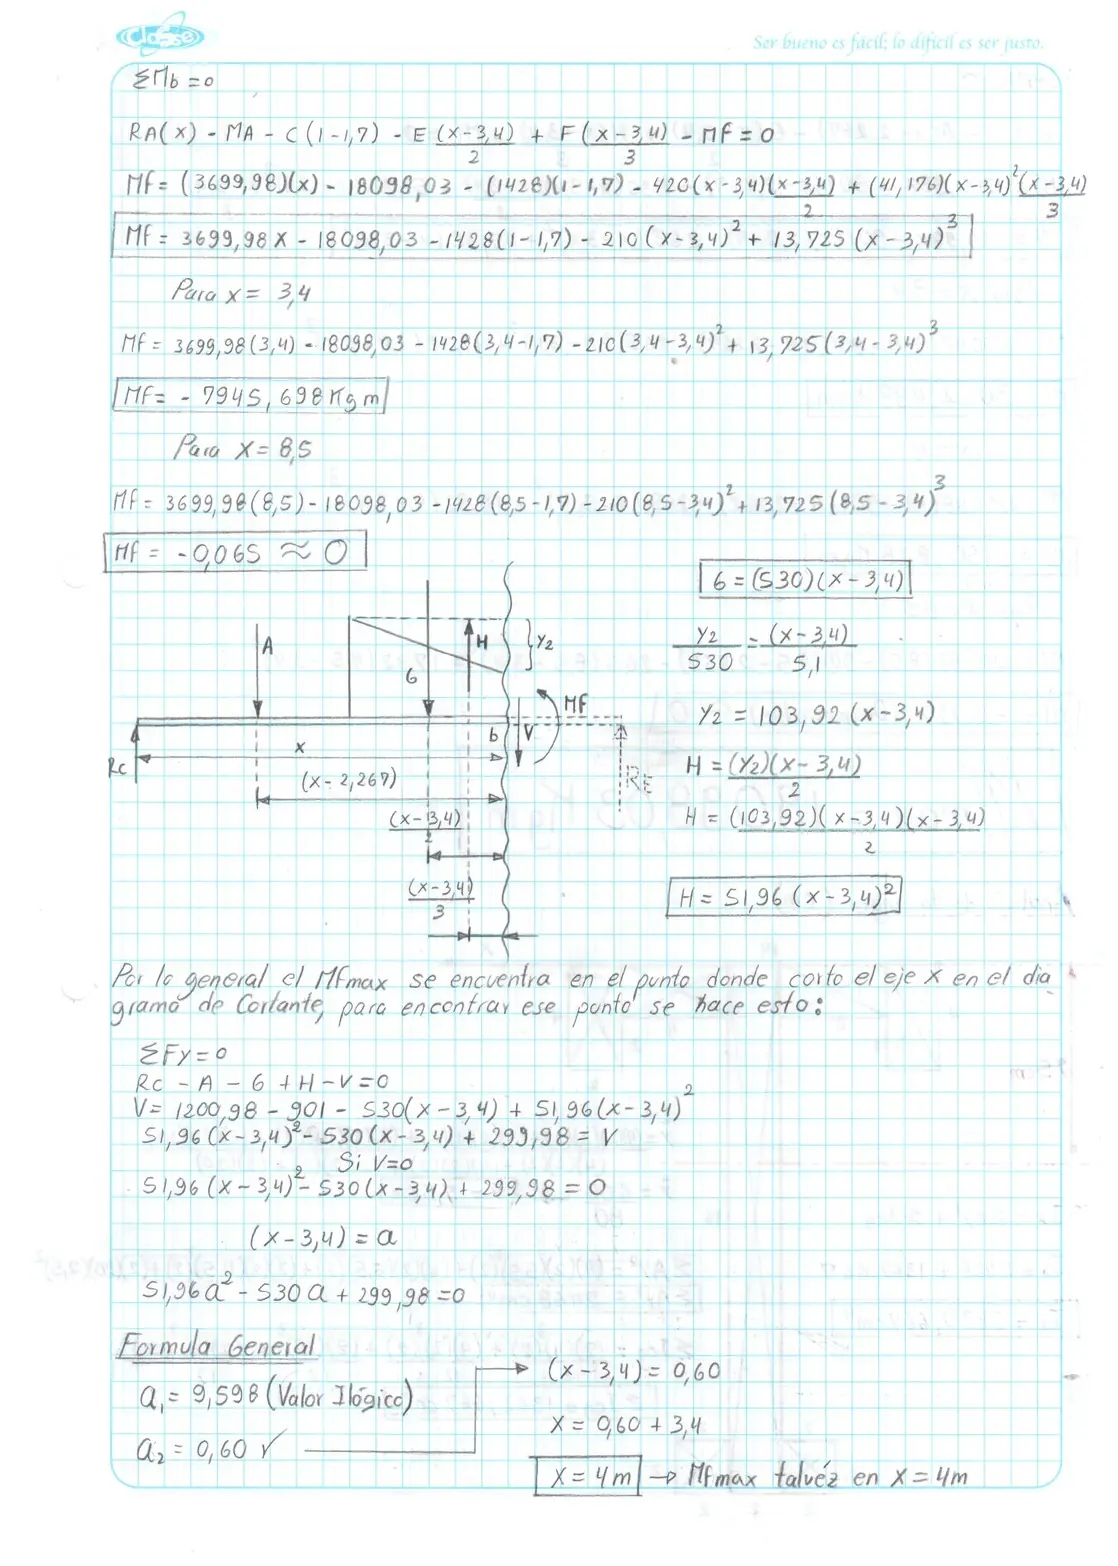 Classe
Ser bueno es fácil; lo difícil es ser justo.
ΣMb = 0
RA(x) - MA - C(1-1,7) - E (x-3,4)/2 + F (x-3,4)/3 - Mf = 0
Mf = (3699,98)(x) - 18098,03 - (1428)(1-1,7) - 420(x-3,4)(x-3,4)/2 + (41,176)(x-3,4)²(x-3,4)/3
Mf = 3699,98 X - 18098,03 - 1428(1-1,7) - 210(x-3,4)² + 13,725 (x-3,4)³
Para x = 3,4
Mf = 3699,98(3,4) - 18098,03 - 1428(3,4-1,7) - 210(3,4-3,4)² + 13,725(3,4-3,4)³
Mf = - 7945,698 Kg m
Para X = 8,5
Mf = 3699,98(8,5) - 18098,03 - 1428(8,5-1,7) - 210(8,5-3,4)² + 13,725(8,5-3,4)³
Mf = -0,065 ≈ 0
G = (530)(x-3,4)
Y2/530 = (x-3,4)/5,1
Y2 = 103,92 (x-3,4)
H = (Y2)(x-3,4)/2
H = (103,92)(x-3,4)(x-3,4)/2
H = 51,96 (x-3,4)²
A
G
H
Y2
Mf
b
V
Rc
RE
x
(x-2,267)
(x-3,4)/2
(x-3,4)/3
Por lo general el Mfmax se encuentra en el punto donde corto el eje X en el dia
grama de Cortante, para encontrar ese punto se hace esto:
ΣFy = 0
Rc - A - G + H - V = 0
V = 1200,98 - 901 - 530(x-3,4) + 51,96(x-3,4)²
51,96(x-3,4)² - 530(x-3,4) + 299,98 = V
Si V=0
51,96(x-3,4)² - 530(x-3,4) + 299,98 = 0
(x-3,4) = a
51,96a² - 530a + 299,98 = 0
Formula General
a1 = 9,598 (Valor Ilógico)
a2 = 0,60 ✓
(x-3,4) = 0,60
X = 0,60 + 3,4
X = 4m → Mfmax talvéz en X = 4m